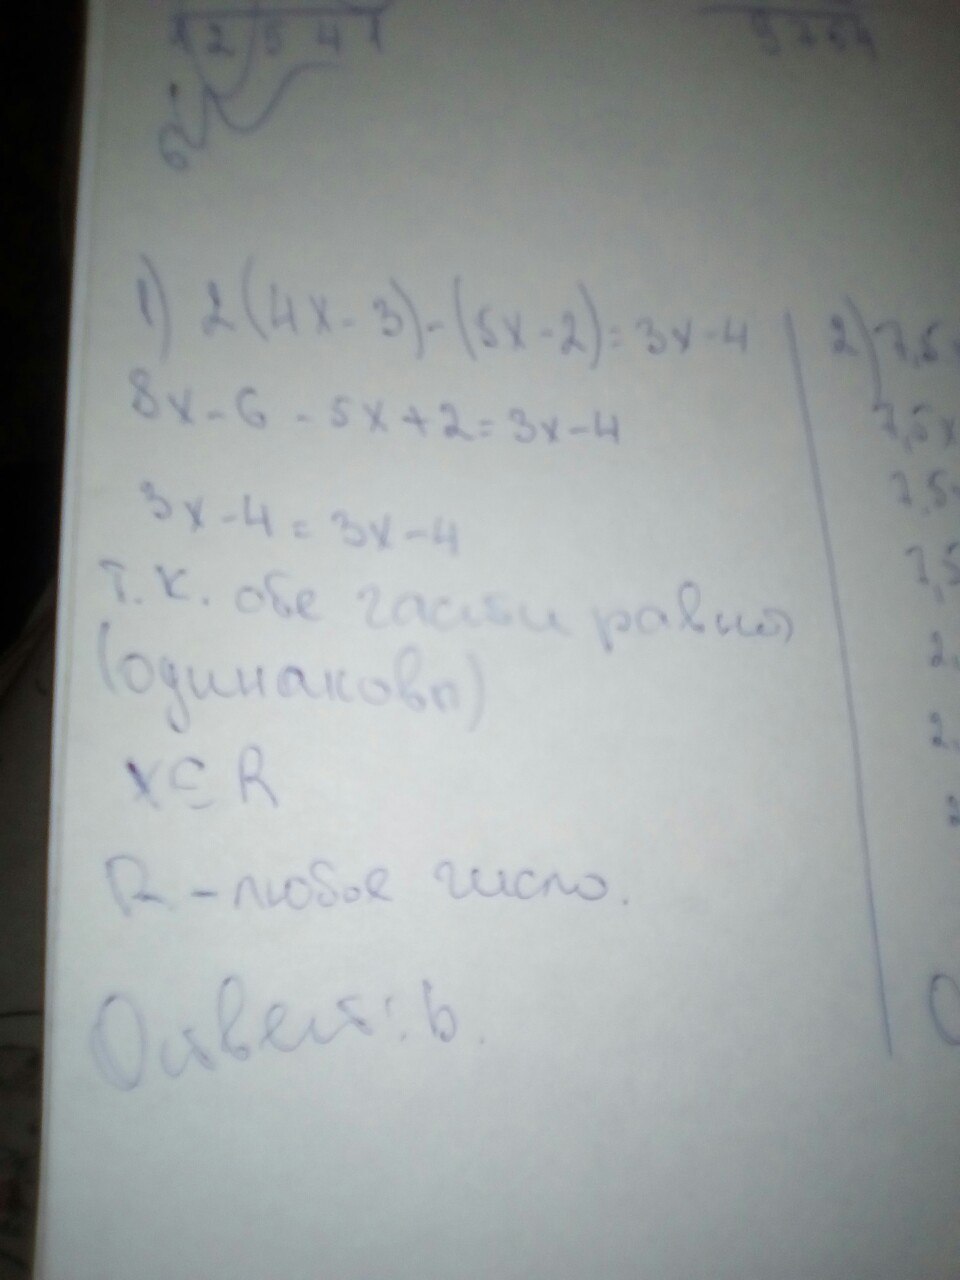 1 2 5 4 1
1) 2(4x-3)-(5x-2)=3x-4
8x-6-5x+2=3x-4
3x-4=3x-4
т.к. обе части равны
(одинаковы)
x ⊆ R
R - любое число.
Ответ: b.
2) 7,5x
7,5x
7,5
7,5
2.
2.
2